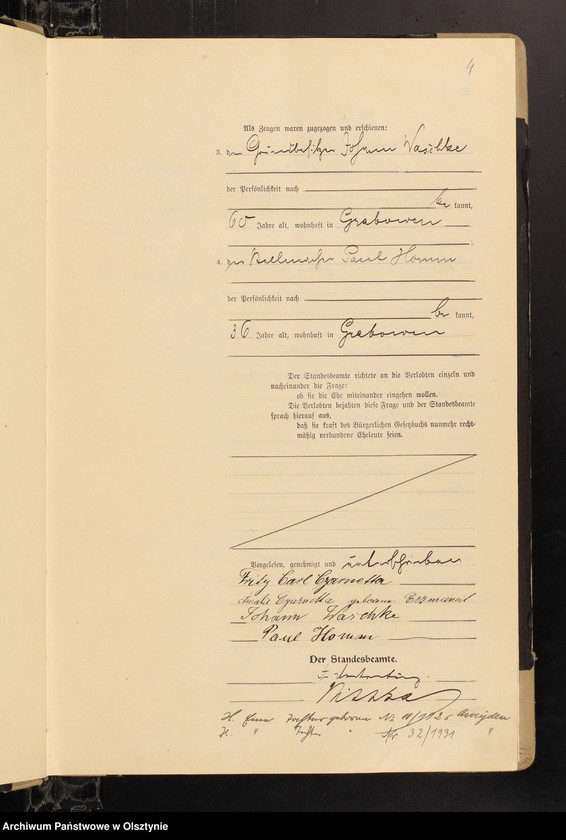 4
Als Zeugen waren zugezogen und erschienen:
3. der Grundbesitzer Johann Waschke
der Persönlichkeit nach
be kannt,
60 Jahre alt, wohnhaft in Grabowen
4. der Paul Homm
der Persönlichkeit nach
be kannt,
36 Jahre alt, wohnhaft in Grabowen
Der Standesbeamte richtete an die Verlobten einzeln und
nacheinander die Frage:
ob sie die Ehe miteinander eingehen wollen.
Die Verlobten bejahten diese Frage und der Standesbeamte
sprach hierauf aus,
daß sie kraft des Bürgerlichen Gesetzbuchs nunmehr recht-
mäßig verbundene Eheleute seien.
Vorgelesen, genehmigt und unterschrieben
Fritz Carl Czarnetta
Czarnetta geborene
Johann Waschke
Paul Homm
Der Standesbeamte.
In Vertretung.
geboren Nr.
Nr. 32/1931 "
Archiwum Państwowe w Olsztynie